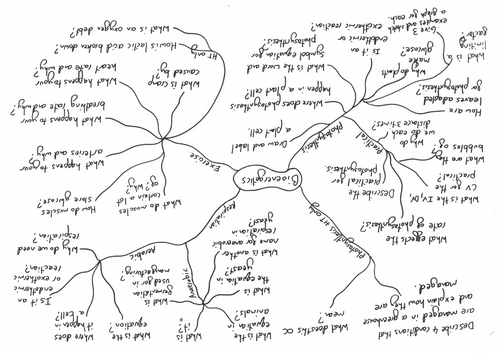 Describe 4 conditions that
are managed in a greenhouse
and explain how they are
managed.
What does this ∝
mean?
Photosynthesis HT only
What affects the
rate of photosynthesis?
What is
the equation in
animals?
What is
it?
What is
fermentation
used for in
manufacturing?
What is
the equation in
yeast?
What is another
name for anaerobic
respiration in
yeast?
Anaerobic
What is the
equation?
Where does
it happen in
a cell?
Is it an
endothermic
or exothermic
reaction?
Why do we need
respiration?
Aerobic
Respiration
Bioenergetics
What is the IV, DV,
CV for the
practical?
Describe the
practical for
photosynthesis.
What are the
bubbles
of?
Why do
we do each
distance 3 times?
Practical
Photosynthesis
Draw and label
a plant cell.
Where does photosynthesis
happen in a plant cell?
How are
leaves adapted
for photosynthesis?
What is the word
symbol equation for
photosynthesis.
Is it an
endothermic or
exothermic reaction?
Why do plants
make
glucose?
What is a
limiting
factor?
Give 3
examples and sketch
a graph for each.
Exercise
What do muscles
contain a lot
of? Why?
How do muscles
store glucose?
What happens to your
arteries and why?
What happens to your
breathing rate and why?
What happens to your
heart rate and why?
What is cramp
caused by?
HT only
How is lactic acid broken down?
What is an oxygen debt?